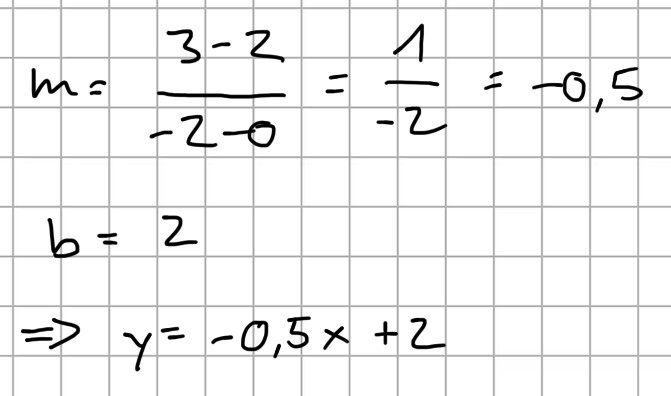 m = (3-2)/(-2-0) = 1/-2 = -0,5
b = 2
⇒ y = -0,5x + 2